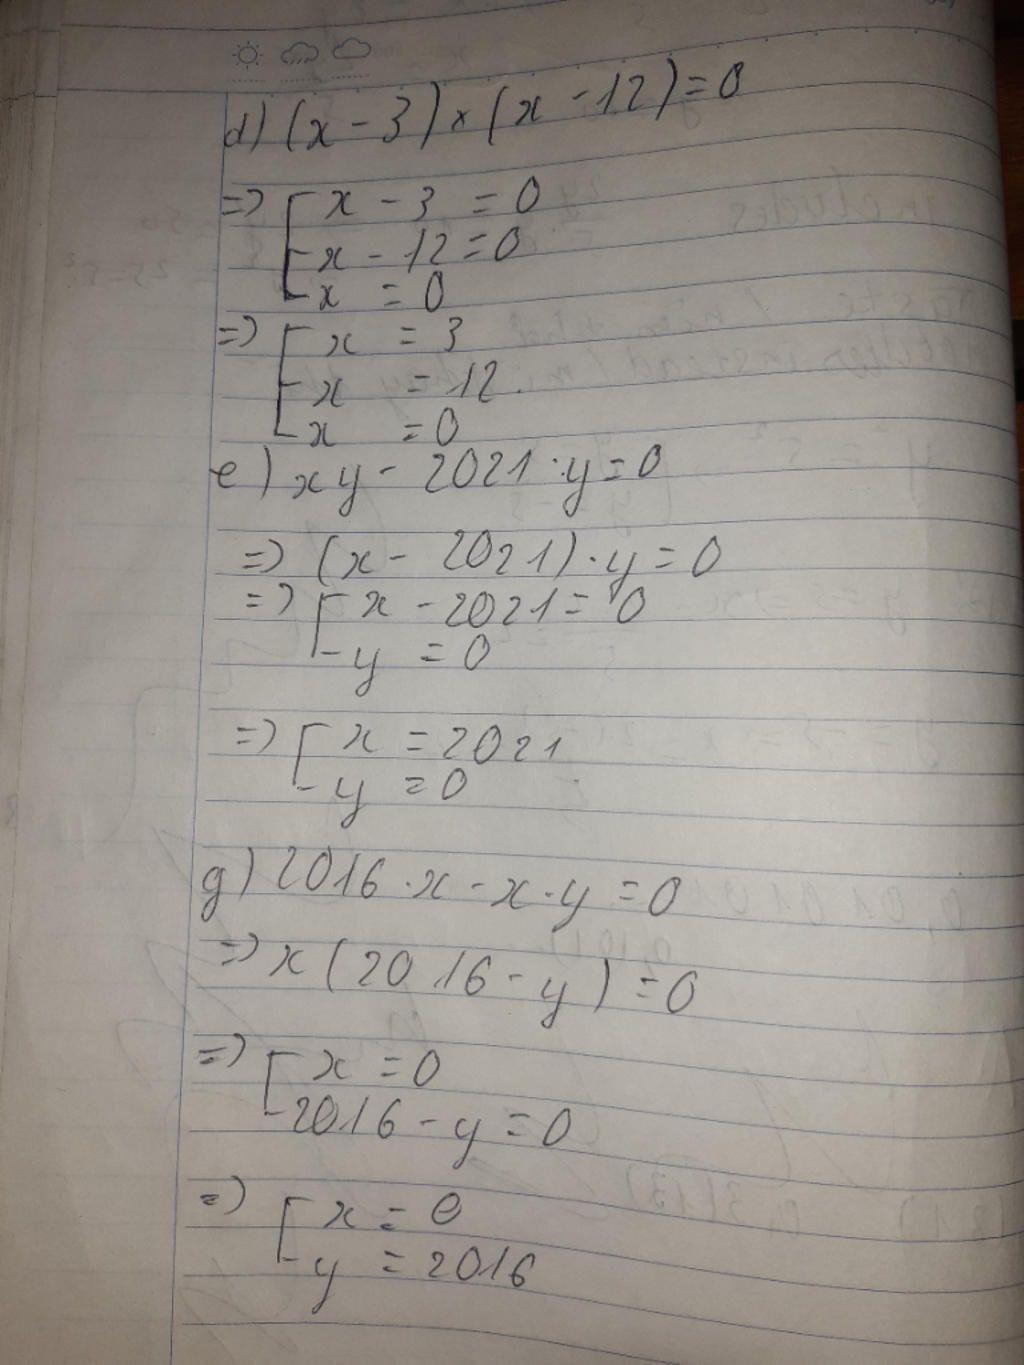 d) (x - 3) × (x - 12) = 0
=> [ x - 3 = 0
x - 12 = 0
x = 0
=> [ x = 3
x = 12.
x = 0
e) xy - 2021 . y = 0
=> (x - 2021) . y = 0
=> [ x - 2021 = 0
y = 0
=> [ x = 2021
y = 0
g) 2016 . x - x . y = 0
=> x (2016 - y) = 0
=> [ x = 0
2016 - y = 0
=> [ x = 0
y = 2016